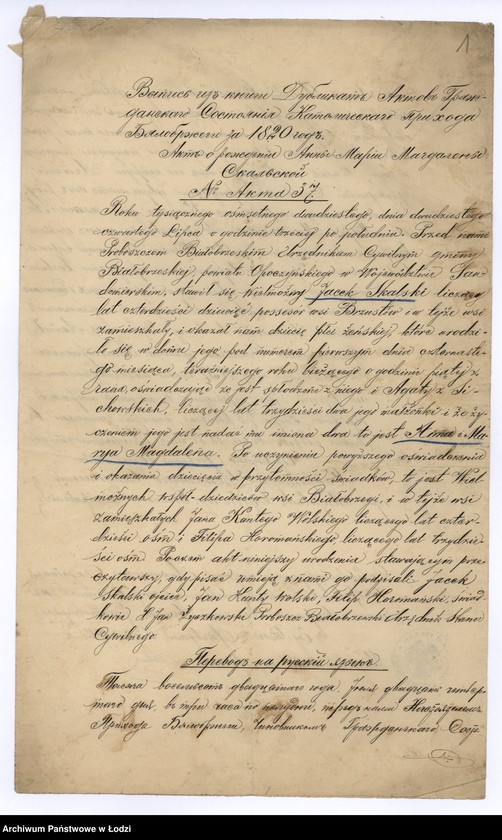 1
Выпись изъ книги Дубликатъ Актовъ Граж-
данскаго Состоянія Католическаго Прихода
Бялобржеги за 1820 годъ.
Актъ о рожденіи Анны Маріи Магдалены
Скальской
№ Акта 37
Roku tysiącznego osmsetnego dwudziestego, dnia dwudziestego
czwartego Lipca o godzinie trzeciej po południu. Przed nami
Proboszczem Białobrzeskim Urzędnikam Cywilnym gminy
Białobrzeskiej, powiatu Opoczyńskiego w Województwie San-
domierskim, stawił się Wielmożny Jacek Skalski liczący
lat czterdzieści dziewięć possessor wsi Brzustów w tejże wsi
zamieszkały, i okazał nam dziecię płci żeńskiej, które urodzi-
ło się w domu jego pod numerem pierwszym dnia czternaste-
go miesiąca, teraźniejszego roku bieżącego o godzinie piątej z
rana, oświadczając że jest spłodzone z niego i Agaty z Ci-
chowskich, liczącej lat trzydzieści dwa jego małżonki i że ży-
czeniem jego jest nadać mu imiona dwa to jest Anna i Ma-
ryja Magdalena. Po uczynieniu powyższego oświadczenia
i okazaniu dziecięcia w przytomności świadków, to jest Wiel-
możnych współ-dziedziców wsi Białobrzegi, i w tejże wsi
zamieszkałych Jana Kantego Wolskiego liczącego lat czter-
dzieści ośm i Filipa Horomańskiego, liczącego lat trzydzie-
ści ośm. Poczem akt niniejszy urodzenia stawającym prze-
czytawszy, gdy pisać umieją z nami go podpisali Jacek
Skalski ojciec, Jan Kanty Wolski, Filip Horomański, świad-
kowie X Jan Życzkowski Proboszcz Białobrzeski Urzędnik Stanu
Cywilnego
Переводъ на русскій языкъ
Тысяча восемьсотъ двадцатаго года, Іюля двадцать четвер-
таго дня, въ три часа по полудни, предъ нами Настоятелемъ
Прихода Бялобржеги, Чиновникомъ Гражданскаго Состр
Archiwum Państwowe w Łodzi